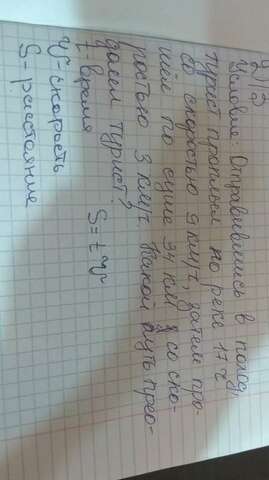 №3
Условие: Отправившись в поход,
турист проплыл по реке 17 ч
со скоростью 9 км/ч, затем про-
шёл по суше 34 км со ско-
ростью 3 км/ч. Какой путь прео-
долел турист?
t - время S = t v
v - скорость
S - расстояние